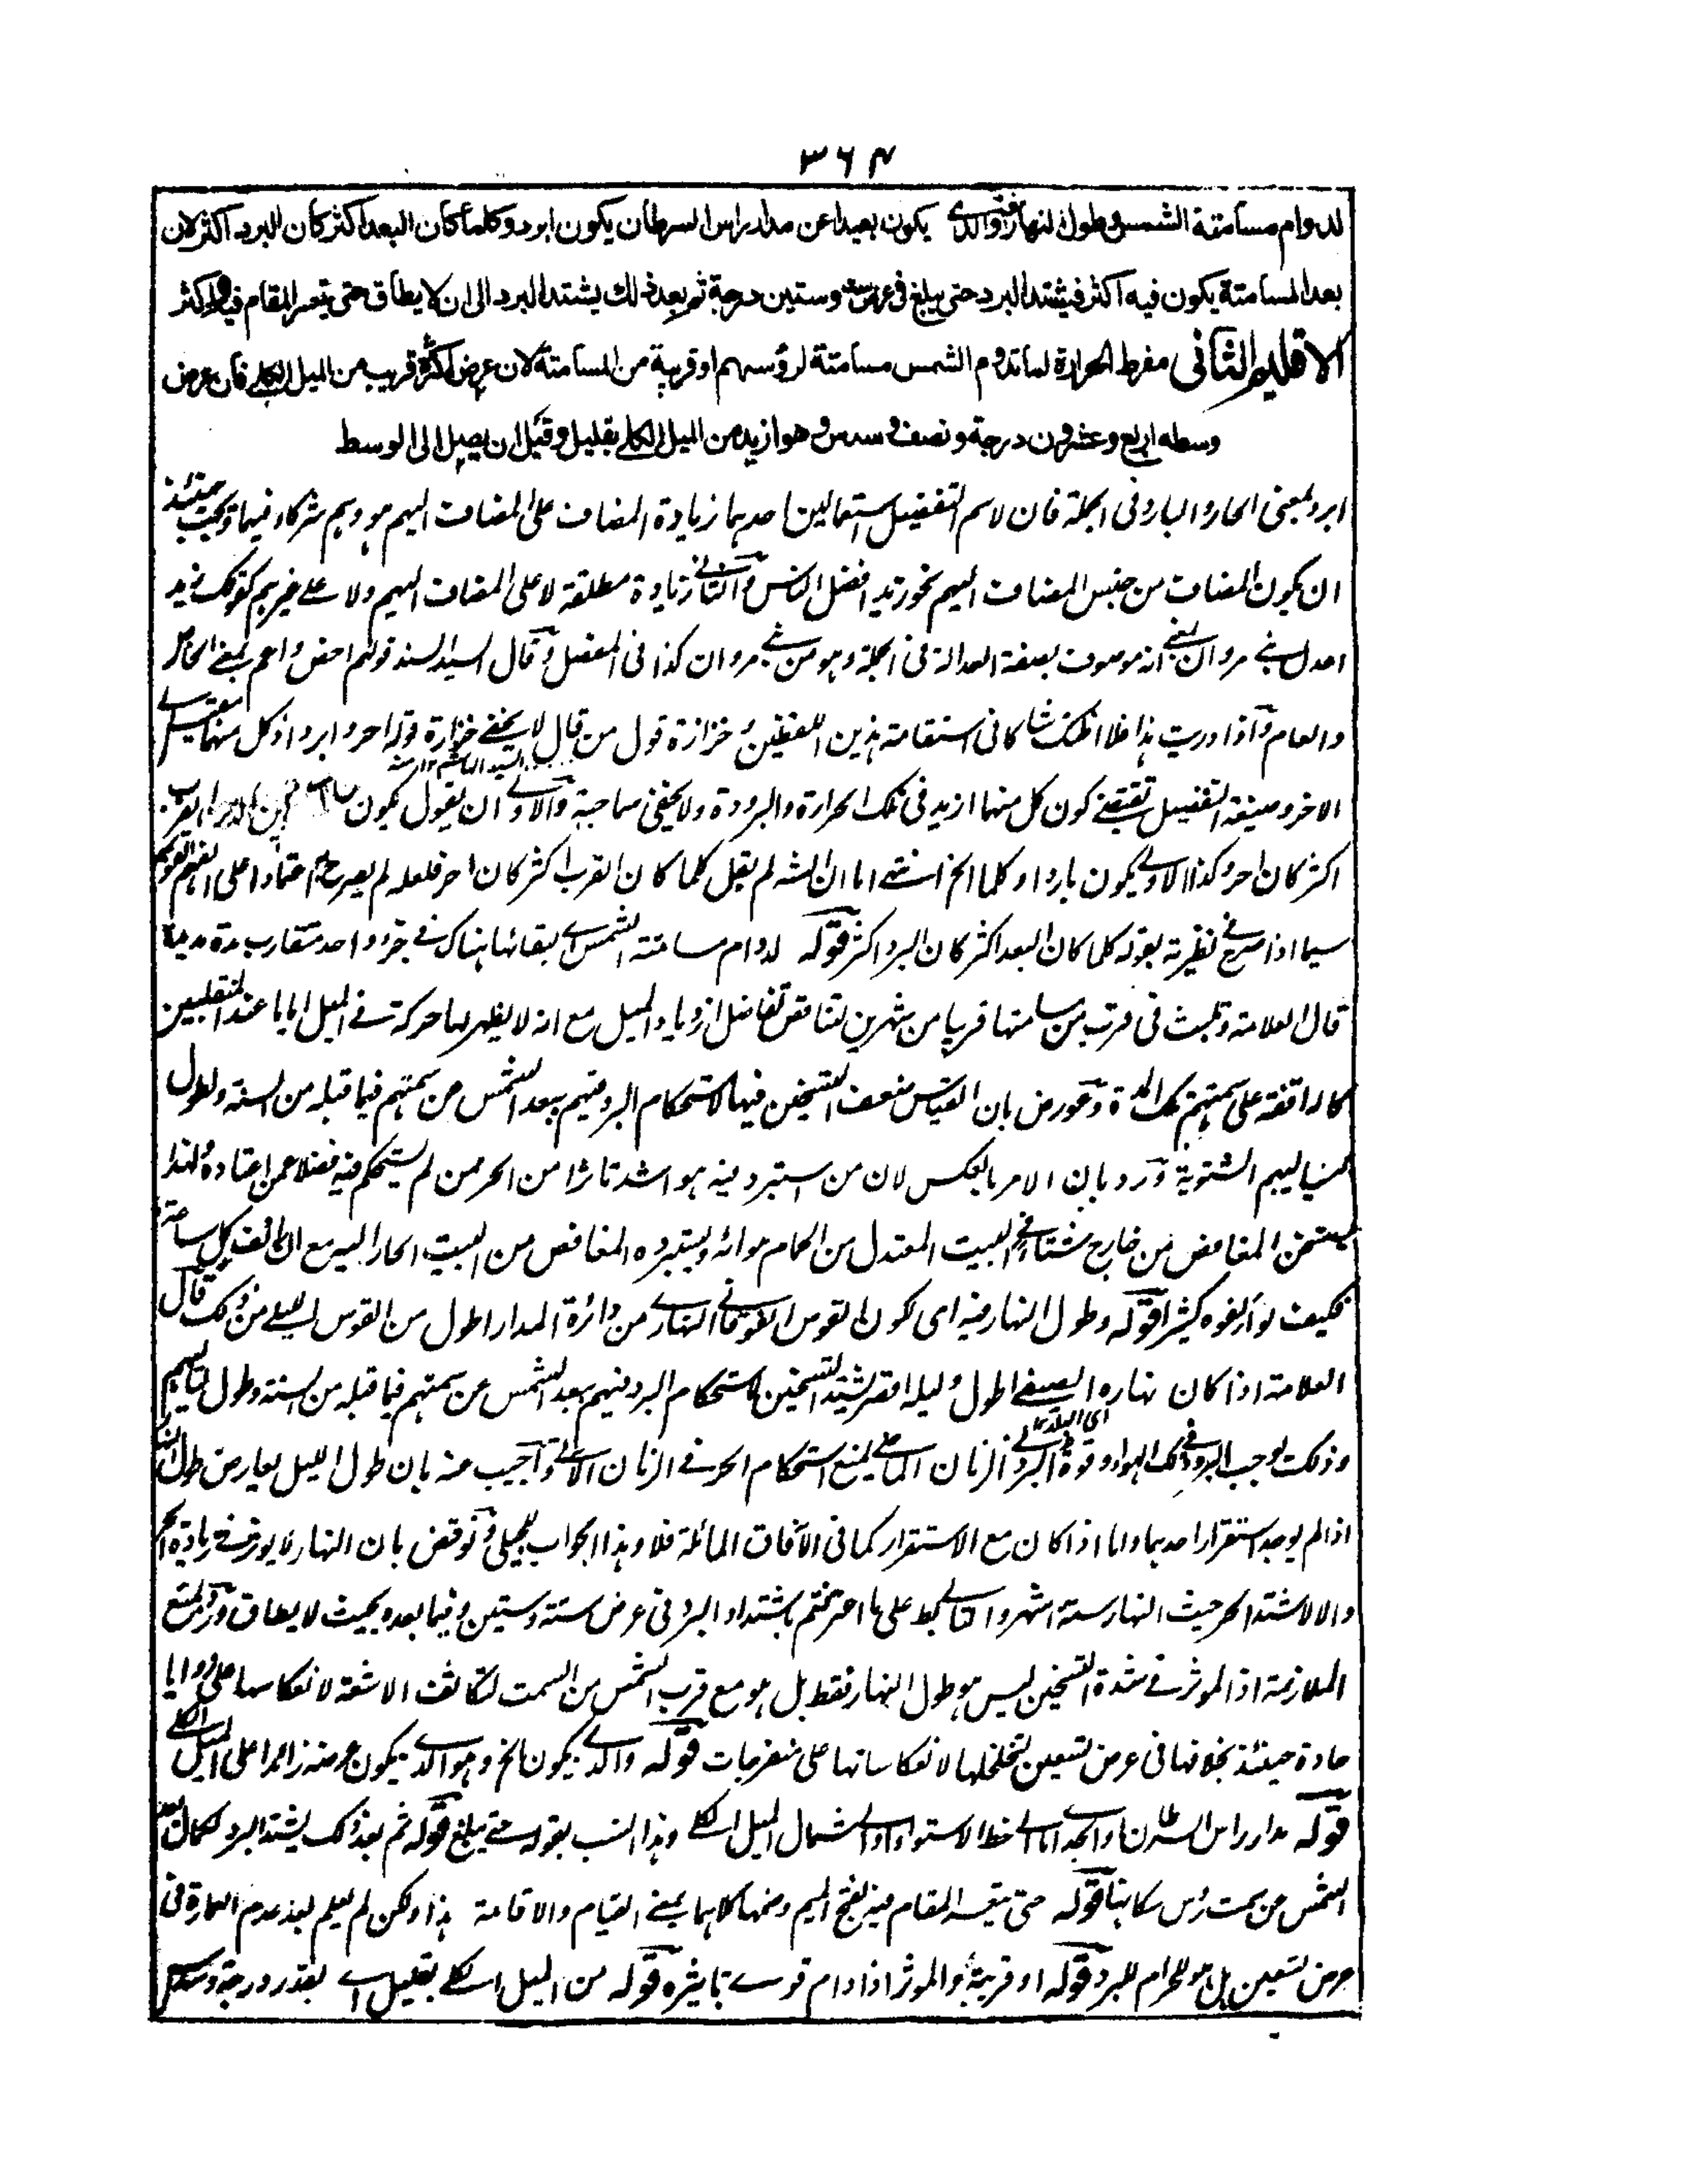 ٣٦٤
لدوام مسامتة الشمس وطول النهار فيه والذى يكون بعيدا عن مدار راس السرطان يكون ابرد وكلما كان البعد اكثر كان البرد اكثر لان
بعد المسامتة يكون فيه اكثر فيشتد البرد حتى يبلغ فى عرض ستة وستين درجة ثم بعد ذلك يشتد البرد الى ان لا يطاق حتى يتعسر المقام فيه واكثر
الاقليم الثانى مفرط الحرارة لما تدوم الشمس مسامتة لرؤسهم او قريبة من المسامتة لان عرض اكثره قريب من الميل الكلے فان عرض
وسطه اربع وعشرون درجة ونصف و سدس وهو ازيد من الميل الكلے بقليل وقبل ان يصل الى الوسط
ابرد بمعنى الحار والبارد فى الجملة فان لاسم التفضيل استعمالين احدہما زيادة المضاف على المضاف اليهم هو وہم شركاء فيها ويجب حينئذ
ان يكون المضاف من جنس المضاف اليهم نحو زيد افضل الناس والثانے زيادة مطلقة لا على المضاف اليهم ولا علے غيرہم كقولك زيد
اعدل بنے مروان يعنے انه موصوف بصفة العدالة فى الجملة وہو من بنے مروان كذا فى المفصل وقال السيد السند قولهم اخص واعم بمعنے الخاص
والعام واذا دريت ہذا فلا اظنك شاكا فى استقامة ہذين اللفظين و حزازة قول من قال لا يخفے حزازة قوله احر وابرد اذ كل منهما
السيد الهاشم ١٢ منه
الاخر وصيغة التفضيل تقتضے كون كل منهما ازيد فى تلك الحرارة والبرودة ولا يخفى سماجته والاولے ان يقول يكون القرب
اكثر كان احر وكذا الاولے يكون باردا وكلما الخ انتهے اما ان الشه لم يقل كلما كان القرب اكثر كان احر فلعله لم يصرح به اعتمادا على الفهم القويم
سيما اذا صرح فے نظيرته بقوله كلما كان البعد اكثر كان البرد اكثر قوله لدوام مسامتة الشمس اے بقائها هناك فے جزء واحد متقارب مدة مديدة
قال العلامة وتلبث فى قرب من مسامتها قريبا من شهرين لتناقص تفاضل ازدياد الميل مع انه لا يظهر لها حركة فے الميل اياما عند المنقلبين
كالواقفة على سمتهم تلك المدة وعورض بان القياس ضعف التسخين فيها لاستحكام البرد فيهم ببعد الشمس عن سمتهم فيما قبله من السنة ولطول
لياليهم الشتوية ورد بان الامر بالعكس لان من استبرد فيه هو اشد تاثرا من الحر ممن لم يستحكم فيه فضلا عمن اعتاده ولهذا
يستسخن المغافص من خارج شتاء فے البيت المعتدل من الحمام هوائه ويستبرده المغافص من البيت الحار اليه مع ان الف كل ساعة
فكيف لو الفوه كثيرا قوله وطول النهار فيه اى لكون القوس الفوقانے النهارے من دائرة المدار اطول من القوس الليلے من ذلك قال
العلامة اذا كان نهاره الصيفے اطول وليله اقصر يشتد التسخين لاستحكام البرد فيهم ببعد الشمس عن سمتهم فيما قبله من السنة وطول لياليهم
اى البلد ١٢
وذلك يوجب البرد فے ذلك الهواء وقوة البرد فے الزمان الماضے يمنع استحكام الحر فے الزمان الآتے واجيب عنه بان طول الليل يعارض طول النهار
اذا لم يوجد استقرار احدہما واما اذا كان مع الاستقرار كما فى الآفاق المائلة فلا وہذا الجواب للجيلى ونوقض بان النهار لا يؤثر فے زيادة الحر
والا لاشتد الحر حيث النهار ستة اشهر والتالے يبطل على ما اعترفتم باشتداد البرد فى عرض ستة وستين وفيما بعده بحيث لا يطاق ورد بمنع
الملازمة اذ المؤثر فے شدة التسخين ليس هو طول النهار فقط بل هو مع قرب الشمس من السمت لتكاثف الاشعة لانعكاسها على زوايا
حادة حينئذ بخلافها فى عرض تسعين لتخلخلها لانعكاساتها على منفرجات قوله والذے يكون الخ وهو الذے يكون عرضه زائدا على الميل الكلے
قوله مدار راس السرطان والبعد اما الے خط الاستواء او الے شمال الميل الكلے وهذا انسب بقوله حتے يبلغ قوله ثم بعد ذلك يشتد البرد لكمال بعد
الشمس عن سمت رؤس سكانها قوله حتى يتعسر المقام فيه بفتح الميم وضمها كلاهما بمعنے القيام والاقامة هذا ولكن لم يعلم بعد عدم العمارة فى
عرض تسعين بل هو للحرام للبرد قوله او قريبة والمؤثر اذا دام قوے تاثيره قوله من الميل الكلے بقليل اے بقدر درجة وسدس